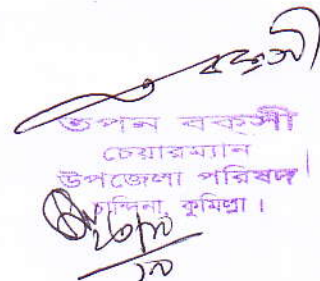 বকসী
তপন বকসী
চেয়ারম্যান
উপজেলা পরিষদ
চান্দিনা, কুমিল্লা।